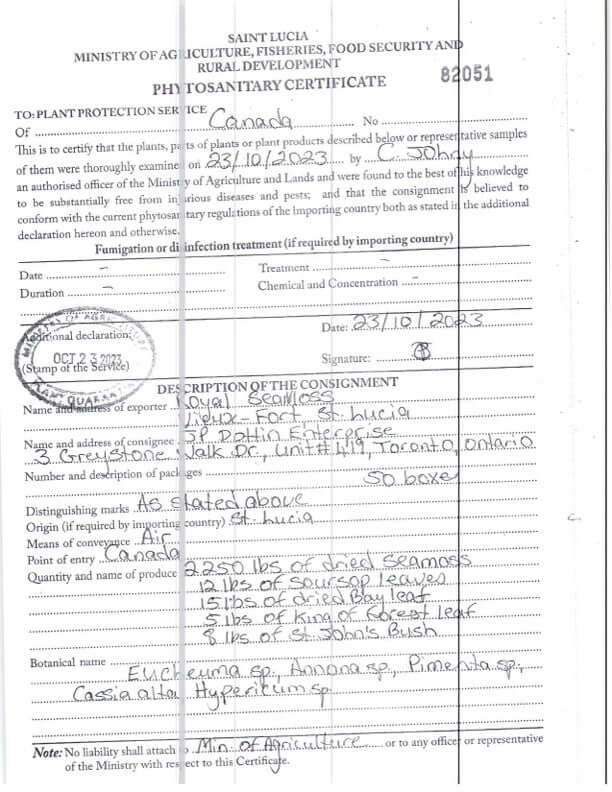 SAINT LUCIA
MINISTRY OF AGRICULTURE, FISHERIES, FOOD SECURITY AND
RURAL DEVELOPMENT
PHYTOSANITARY CERTIFICATE
82051
TO: PLANT PROTECTION SERVICE
Of Canada No
This is to certify that the plants, parts of plants or plant products described below or representative samples
of them were thoroughly examined on 23/10/2023 by C. Johny
an authorised officer of the Ministry of Agriculture and Lands and were found to the best of his knowledge
to be substantially free from injurious diseases and pests; and that the consignment is believed to
conform with the current phytosanitary regulations of the importing country both as stated in the additional
declaration hereon and otherwise.
Fumigation or disinfection treatment (if required by importing country)
Date – Treatment –
Duration – Chemical and Concentration –
Additional declaration:
Date: 23/10/2023
MINISTRY OF AGRICULTURE
OCT 23 2023
PLANT QUARANTINE
(Stamp of the Service)
Signature:
DESCRIPTION OF THE CONSIGNMENT
Name and address of exporter Royal Seamoss
Vieux-Fort St. Lucia
Name and address of consignee JP Dottin Enterprise
3 Greystone Walk Dr., Unit# 419, Toronto, Ontario
Number and description of packages 50 boxes
Distinguishing marks As stated above
Origin (if required by importing country) St. Lucia
Means of conveyance Air
Point of entry Canada
Quantity and name of produce 2250 lbs of dried seamoss
12 lbs of soursop leaves
15 lbs of dried Bay leaf
5 lbs of King of Forest leaf
8 lbs of St. John's Bush
Botanical name
Eucheuma sp., Annona sp., Pimenta sp.,
Cassia alta, Hypericum sp
Note: No liability shall attach to Min. of Agriculture or to any officer or representative
of the Ministry with respect to this Certificate.